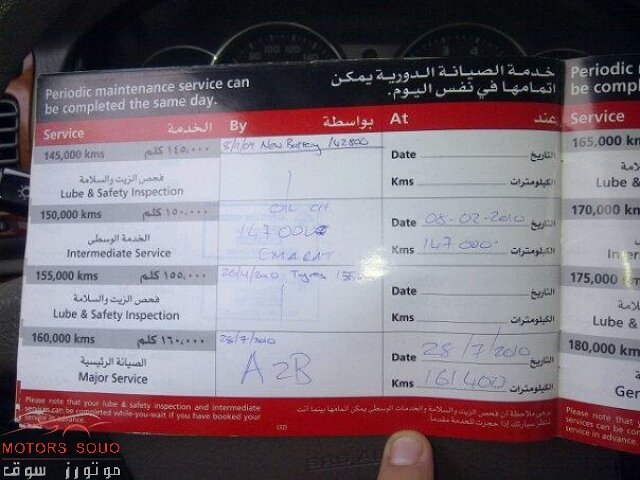 Periodic maintenance service can
be completed the same day.
خدمة الصيانة الدورية يمكن
اتمامها في نفس اليوم.
Service الخدمة By بواسطة At عند
145,000 kms ١٤٥,٠٠٠ كلم
فحص الزيت والسلامة
Lube & Safety Inspection
8/11/09 New Battery 142800
Date التاريخ
Kms الكيلومترات
150,000 kms ١٥٠,٠٠٠ كلم
الخدمة الوسطى
Intermediate Service
OIL CH
147000
EMARAT
Date 08-02-2010 التاريخ
Kms 147000 الكيلومترات
155,000 kms ١٥٥,٠٠٠ كلم
فحص الزيت والسلامة
Lube & Safety Inspection
26/4/2010 Tyres
Date التاريخ
Kms الكيلومترات
160,000 kms ١٦٠,٠٠٠ كلم
الصيانة الرئيسية
Major Service
28/7/2010
A2B
Date 28/7/2010 التاريخ
Kms 161400 الكيلومترات
Please note that your lube & safety inspection and intermediate
services can be completed while-you-wait if you have booked your
service in advance.
يرجى ملاحظة ان فحص الزيت والسلامة والخدمات الوسطى يمكن اتمامها بينما أنت
تنتظر سيارتك إذا حجزت للخدمة مقدماً.
(32)
Periodic
be compl
Service
165,000 kms
Lube &
170,000 km
Inter
175,000
Lube &
180,000
Gen
Please note that your
services can be
service in advance
MOTORS SOUQ
موتورز سوق